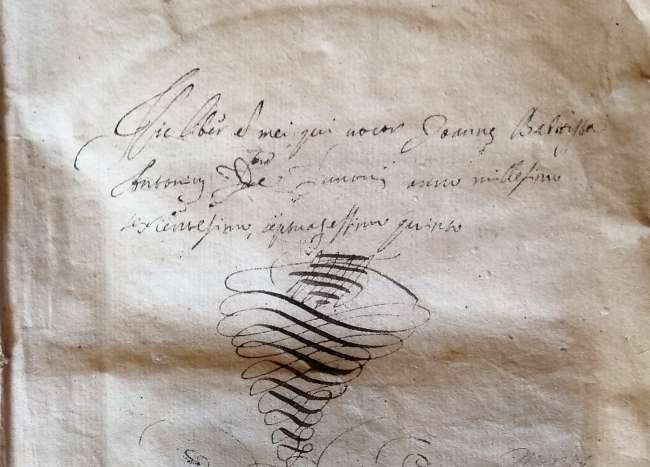 Hic liber est mei qui vocor Joannes Baptista
Antonius De anno millesimo
sexcentesimo septuagessimo quinto